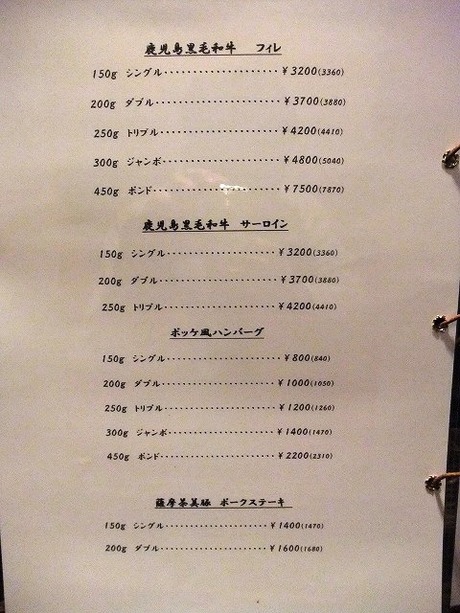 鹿児島黒毛和牛 フィレ
150g シングル・・・・・・・・・・・・・・・・・・・・¥3200(3360)
200g ダブル・・・・・・・・・・・・・・・・・・・・¥3700(3880)
250g トリプル・・・・・・・・・・・・・・・・・・・・¥4200(4410)
300g ジャンボ・・・・・・・・・・・・・・・・・・・・¥4800(5040)
450g ポンド・・・・・・・・・・・・・・・・・・・・¥7500(7870)
鹿児島黒毛和牛 サーロイン
150g シングル・・・・・・・・・・・・・・・・・・・・¥3200(3360)
200g ダブル・・・・・・・・・・・・・・・・・・・・¥3700(3880)
250g トリプル・・・・・・・・・・・・・・・・・・・・¥4200(4410)
ボッケ風ハンバーグ
150g シングル・・・・・・・・・・・・・・・・・・・・¥800(840)
200g ダブル・・・・・・・・・・・・・・・・・・・・¥1000(1050)
250g トリプル・・・・・・・・・・・・・・・・・・・・¥1200(1260)
300g ジャンボ・・・・・・・・・・・・・・・・・・・・¥1400(1470)
450g ポンド・・・・・・・・・・・・・・・・・・・・¥2200(2310)
薩摩茶美豚 ポークステーキ
150g シングル・・・・・・・・・・・・・・・・・・・・¥1400(1470)
200g ダブル・・・・・・・・・・・・・・・・・・・・¥1600(1680)